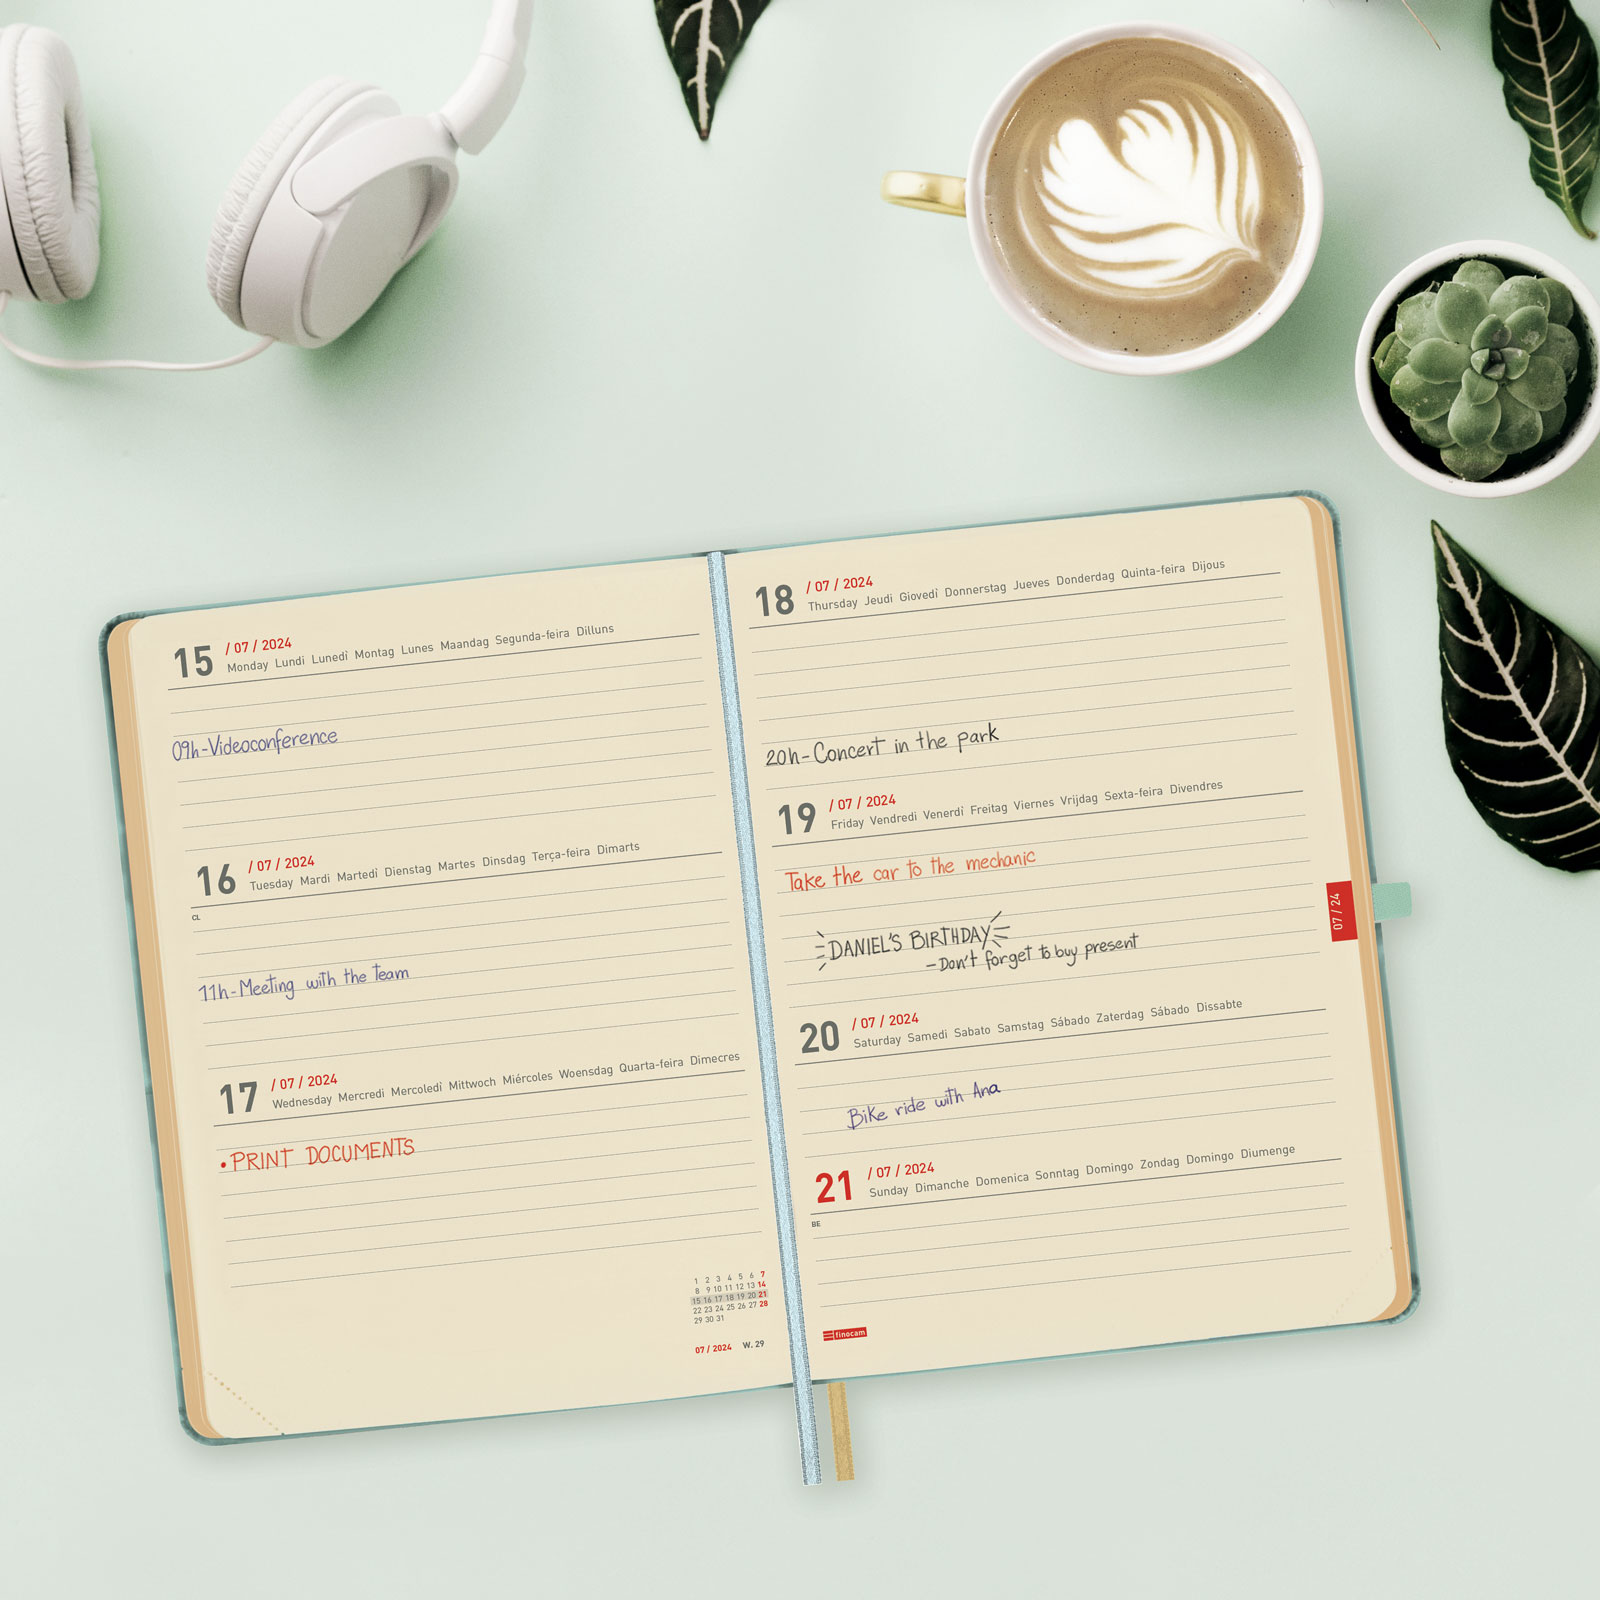 15 / 07 / 2024
Monday Lundi Lunedì Montag Lunes Maandag Segunda-feira Dilluns
09h-Videoconference
16 / 07 / 2024
Tuesday Mardi Martedì Dienstag Martes Dinsdag Terça-feira Dimarts
CL
11h-Meeting with the team
17 / 07 / 2024
Wednesday Mercredi Mercoledì Mittwoch Miércoles Woensdag Quarta-feira Dimecres
•PRINT DOCUMENTS
1 2 3 4 5 6 7
8 9 10 11 12 13 14
15 16 17 18 19 20 21
22 23 24 25 26 27 28
29 30 31
07 / 2024 W. 29
18 / 07 / 2024
Thursday Jeudi Giovedì Donnerstag Jueves Donderdag Quinta-feira Dijous
20h-Concert in the park
19 / 07 / 2024
Friday Vendredi Venerdì Freitag Viernes Vrijdag Sexta-feira Divendres
Take the car to the mechanic
DANIEL'S BIRTHDAY
-Don't forget to buy present
07 / 24
20 / 07 / 2024
Saturday Samedi Sabato Samstag Sábado Zaterdag Sábado Dissabte
Bike ride with Ana
21 / 07 / 2024
Sunday Dimanche Domenica Sonntag Domingo Zondag Domingo Diumenge
BE
finocam